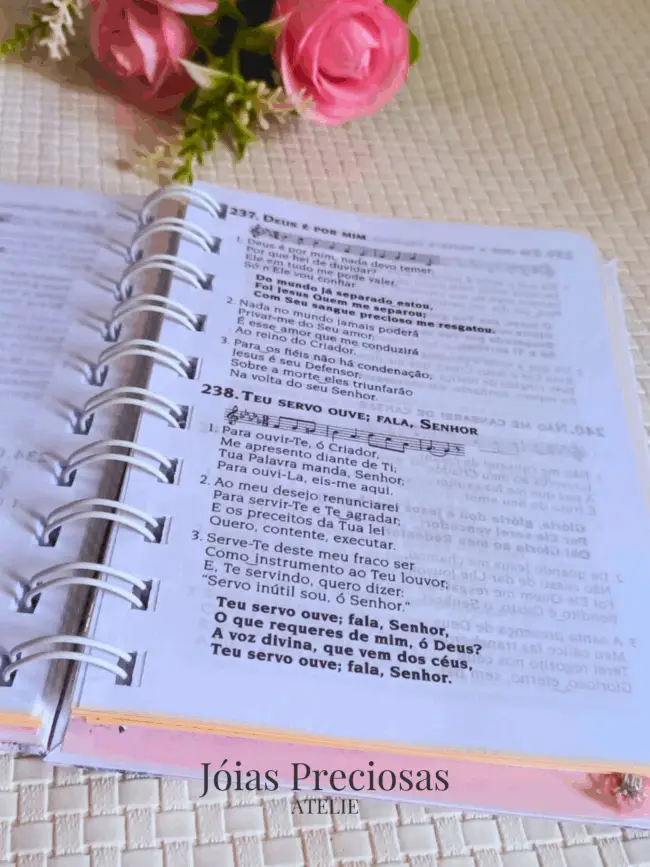 237. DEUS É POR MIM
1. Deus é por mim, nada devo temer,
Por que hei de duvidar?
Ele em tudo me pode valer,
Só n'Ele vou confiar.
Do mundo já separado estou,
Foi Jesus Quem me separou;
Com Seu sangue precioso me resgatou.
2. Nada no mundo jamais poderá
Privar-me do Seu amor;
É esse amor que me conduzirá
Ao reino do Criador.
3. Para os fiéis não há condenação;
Jesus é seu Defensor;
Sobre a morte eles triunfarão
Na volta do seu Senhor.
238. TEU SERVO OUVE; FALA, SENHOR
1. Para ouvir-Te, ó Criador,
Me apresento diante de Ti;
Tua Palavra manda, Senhor;
Para ouvi-La, eis-me aqui.
2. Ao meu desejo renunciarei
Para servir-Te e Te agradar;
E os preceitos da Tua lei
Quero, contente, executar.
3. Serve-Te deste meu fraco ser
Como instrumento ao Teu louvor;
E, Te servindo, quero dizer:
"Servo inútil sou, ó Senhor."
Teu servo ouve; fala, Senhor,
O que requeres de mim, ó Deus?
A voz divina, que vem dos céus,
Teu servo ouve; fala, Senhor.
Jóias Preciosas
ATELIE